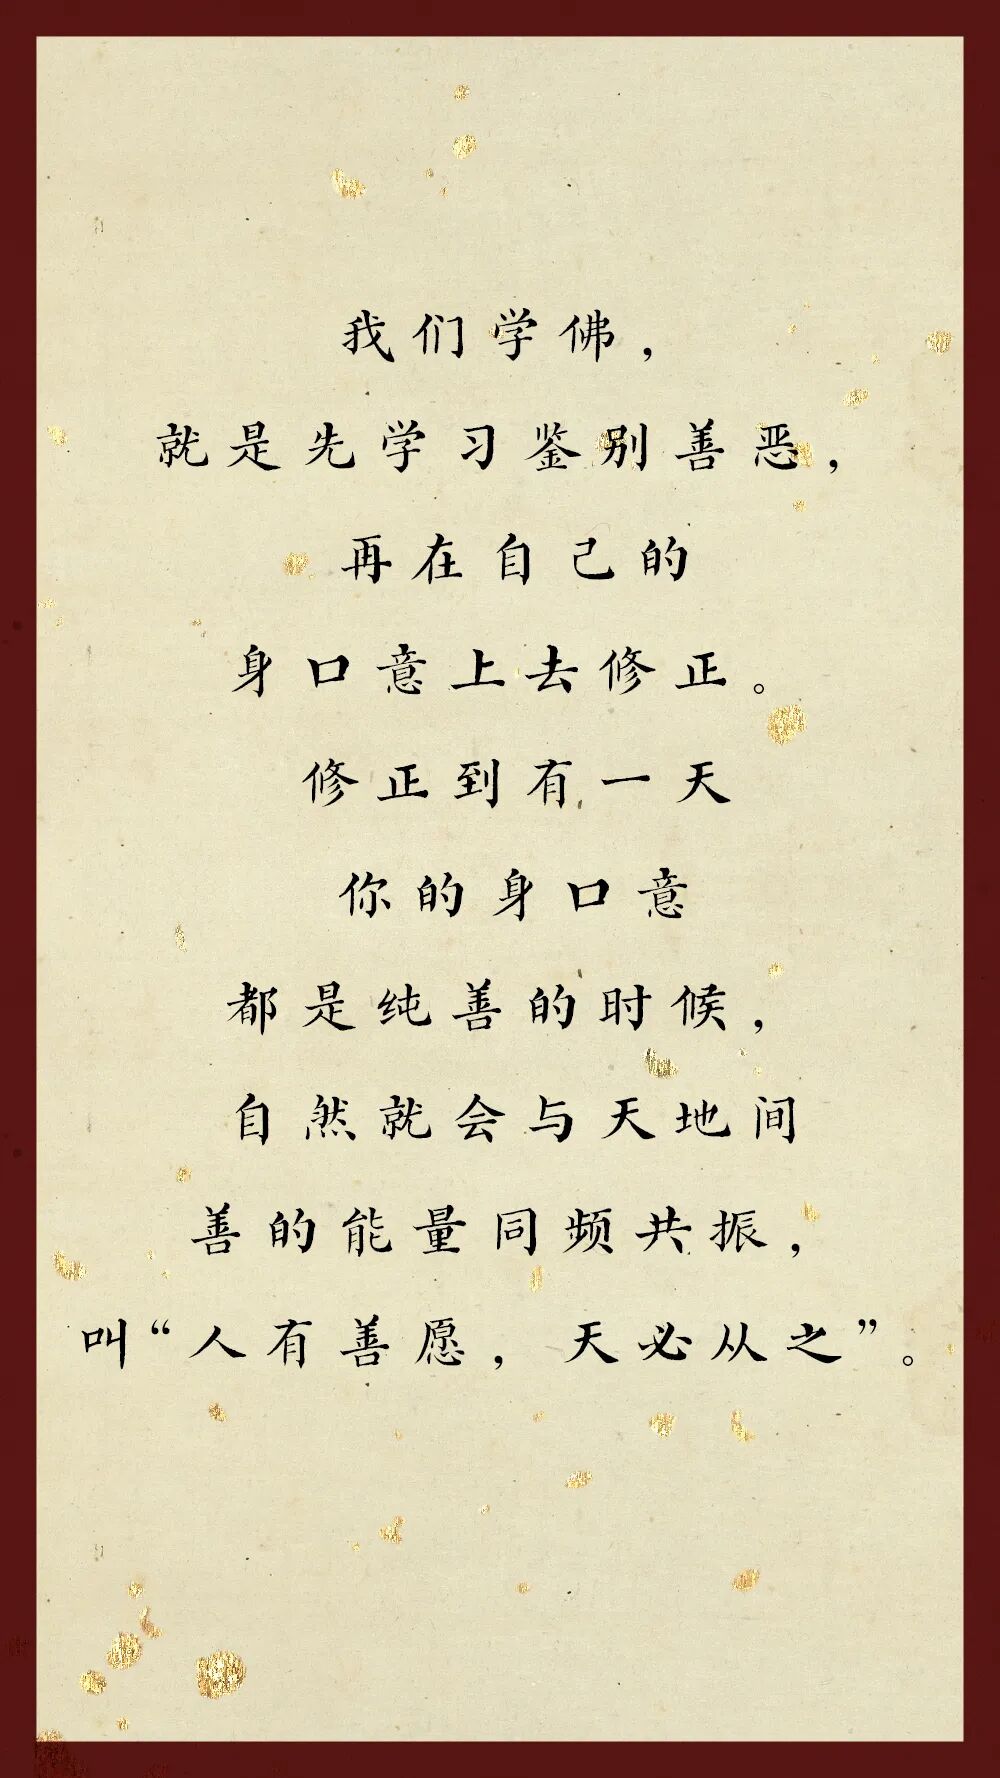 我们学佛，
就是先学习鉴别善恶，
再在自己的
身口意上去修正。
修正到有一天
你的身口意
都是纯善的时候，
自然就会与天地间
善的能量同频共振，
叫“人有善愿，天必从之”。